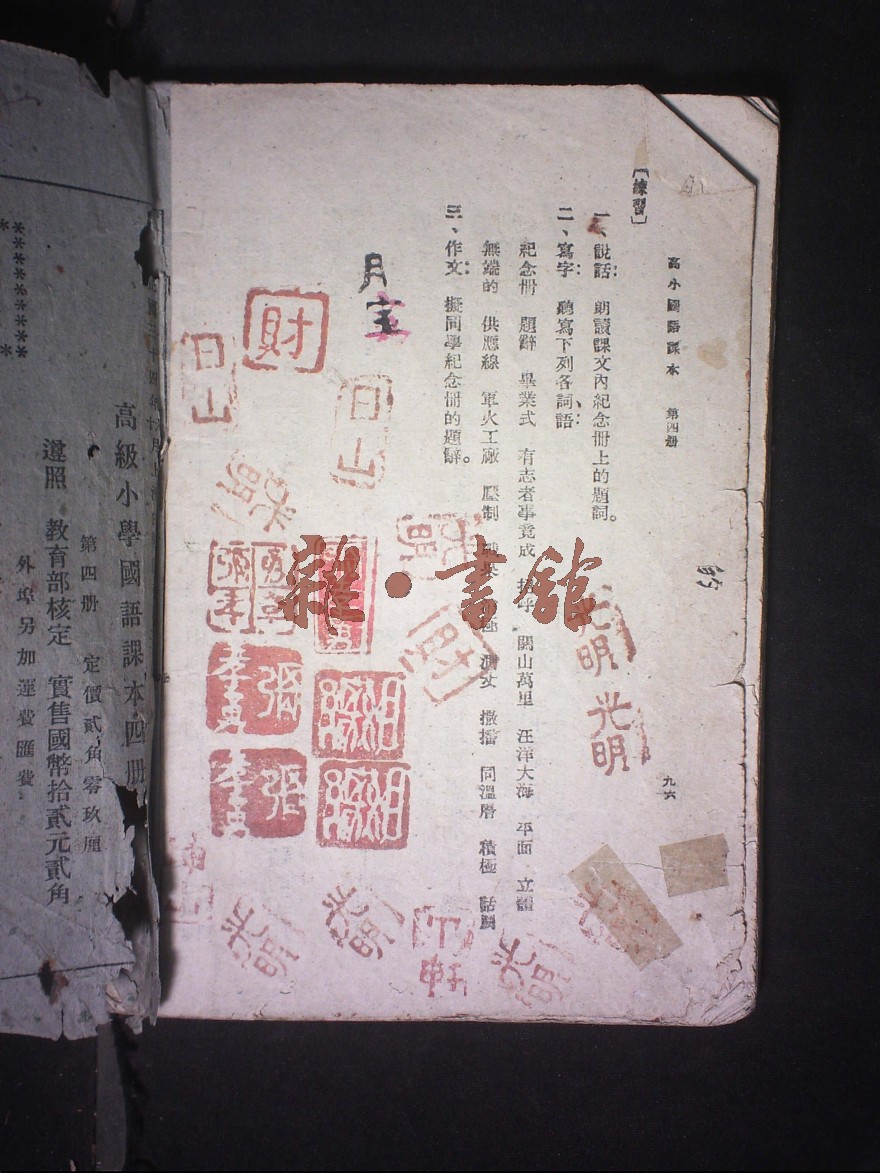 高小國語課本　第四册
九六
〔練習〕
一、說話：朗讀課文內紀念册上的題詞。
二、寫字：聽寫下列各詞語：
紀念册　題辭　畢業式　有志者事竟成　關山萬里　汪洋大海　平面　立體
無端的　供應線　軍火工廠　壓制　撒播　同溫層　積極　話題
三、作文：擬同學紀念册的題辭。
月宝
財
日山
日山
光明
財
光明
光明
張
張
光明
光明
光明
雜·書館
高級小學國語課本四册
第四册　定價貳角零玖厘
遵照　教育部核定　實售國幣拾貳元貳角
外埠另加運費匯費